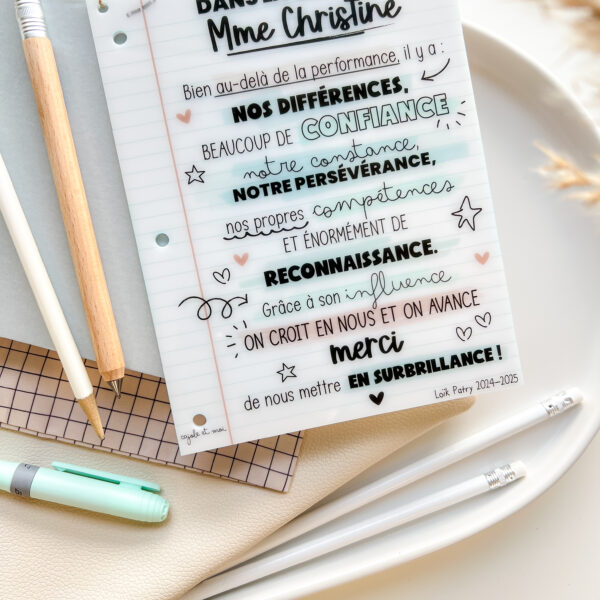 DANS
Mme Christine
Bien au-delà de la performance, il y a :
NOS DIFFÉRENCES,
BEAUCOUP DE CONFIANCE
notre constance,
NOTRE PERSÉVÉRANCE,
nos propres compétences
ET ÉNORMÉMENT DE
RECONNAISSANCE.
Grâce à son influence
ON CROIT EN NOUS ET ON AVANCE
merci
de nous mettre EN SURBRILLANCE !
Loïk Patry 2024-2025
cajole et moi